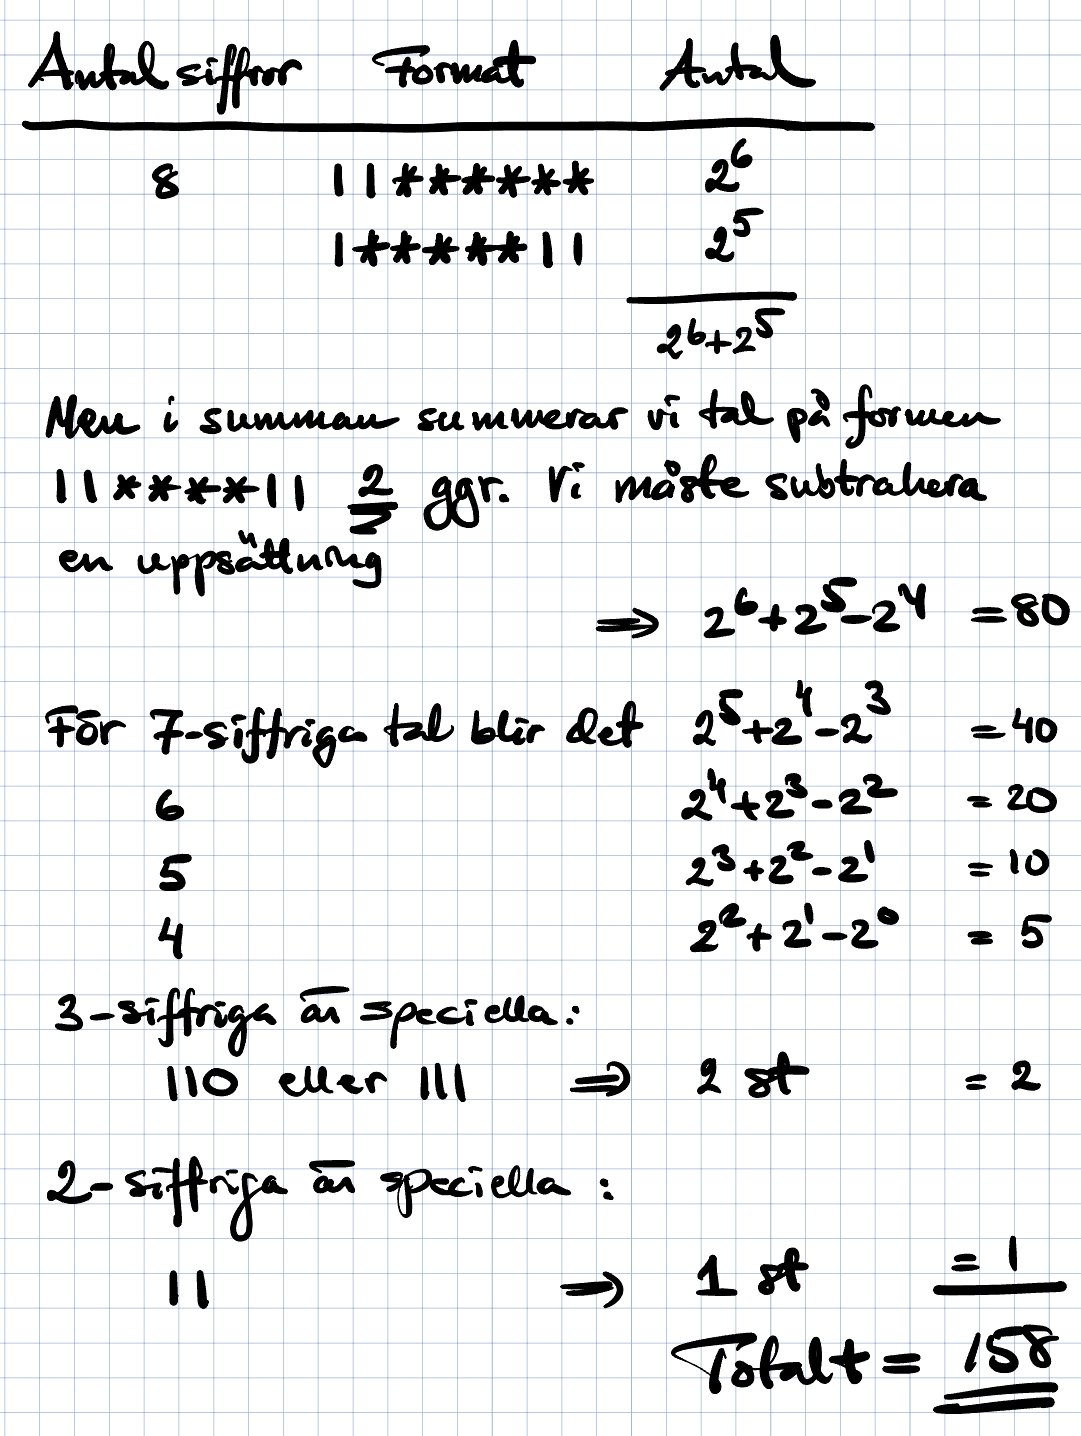 Antal siffror Format Antal
8 11****** 2^6
1*****11 2^5
2^6+2^5
Men i summan summerar vi tal på formen
11****11 2 ggr. Vi måste subtrahera
en uppsättning
⇒ 2^6+2^5-2^4 =80
För 7-siffriga tal blir det 2^5+2^4-2^3 =40
6 2^4+2^3-2^2 =20
5 2^3+2^2-2^1 =10
4 2^2+2^1-2^0 =5
3-siffriga är speciella:
110 eller 111 ⇒ 2 st =2
2-siffriga är speciella:
11 ⇒ 1 st =1
Totalt = 158